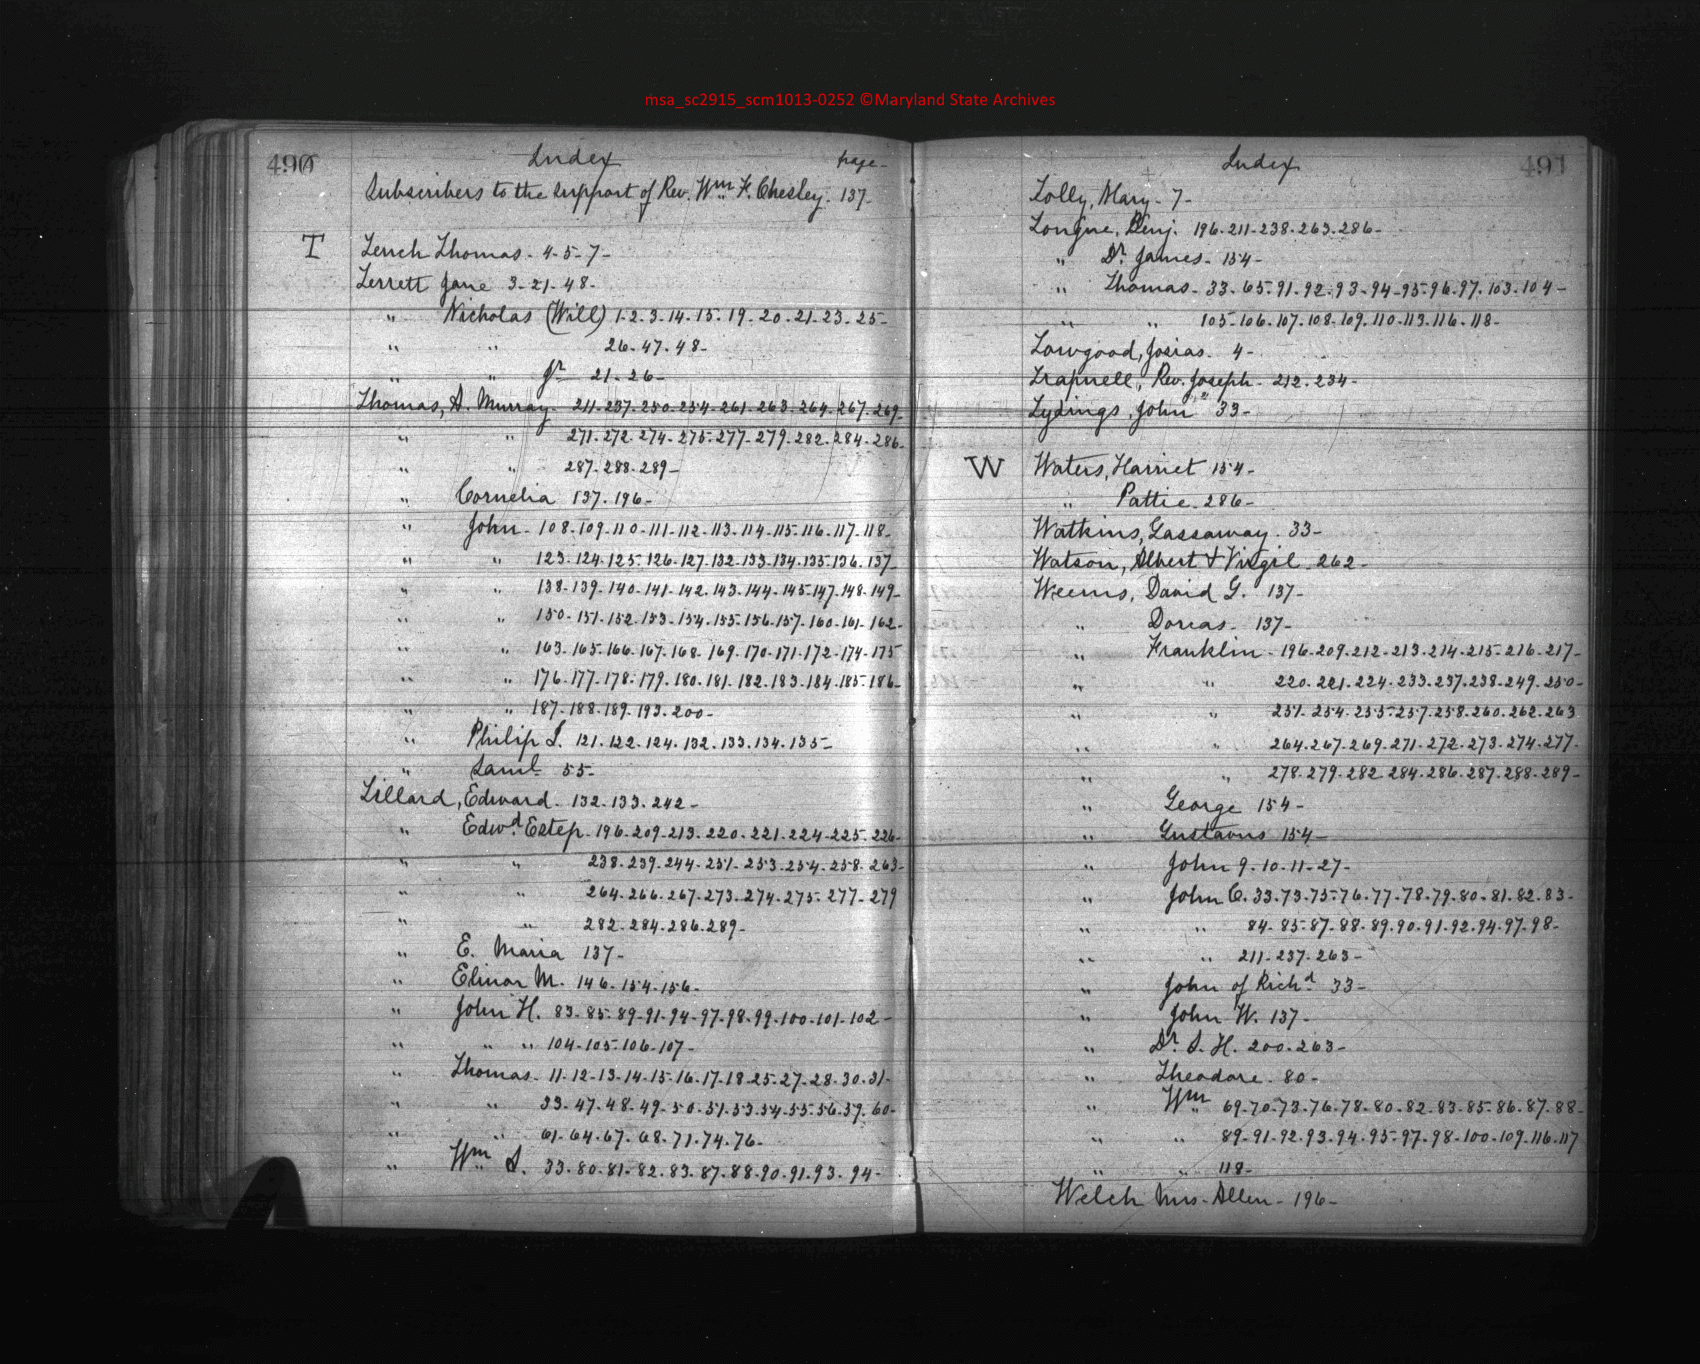 msa_sc2915_scm1013-0252 ©Maryland State Archives
490
Index page-
Subscribers to the support of Rev. Wm. F. Chesley. 137-
T Tench Thomas - 4-5-7-
Terrett Jane 3-21-48-
" Nicholas (Will) 1-2-3-14-15-19-20-21-23-25-
" " 26-47-48-
" " Jr 21-26-
Thomas, A. Murray- 211-237-250-254-261-263-264-267-269-
" " 271-272-274-275-277-279-282-284-286-
" " 287-288-289-
" Cornelia 137-196-
" John - 108-109-110-111-112-113-114-115-116-117-118-
" " 123-124-125-126-127-132-133-134-135-136-137-
" " 138-139-140-141-142-143-144-145-147-148-149-
" " 150-151-152-153-154-155-156-157-160-161-162-
" " 163-165-166-167-168-169-170-171-172-174-175
" " 176-177-178-179-180-181-182-183-184-185-186-
" " 187-188-189-193-200-
" Philip S. 121-122-124-132-133-134-135-
" Saml. 55-
Tillard, Edward - 132-133-242-
" Edwd. Estep - 196-209-213-220-221-224-225-226-
" " 238-239-244-251-253-254-258-263-
" " 264-266-267-273-274-275-277-279
" " 282-284-286-289-
" E. Maria 137-
" Elinor M. 146-154-156-
" John H. 83-85-89-91-94-97-98-99-100-101-102-
" " " 104-105-106-107-
" Thomas - 11-12-13-14-15-16-17-18-25-27-28-30-31-
" " 33-47-48-49-50-51-53-54-55-56-57-60-
" " 61-64-67-68-71-74-76-
" Wm. S. 33-80-81-82-83-87-88-90-91-93-94-
Index 491
Tolly, Mary - 7-
Tongue, Benj. 196-211-238-263-286-
" Dr. James - 154-
" Thomas - 33-65-91-92-93-94-95-96-97-103-104-
" " 105-106-107-108-109-110-113-116-118-
Towgood, Josias. 4-
Trapnell, Rev. Joseph - 212-234-
Tydings, John 33-
W Waters, Harriet 154-
" Pattie - 286-
Watkins, Gassaway - 33-
Watson, Albert & Virgil - 262-
Weems, David G. 137-
" Dorcas - 137-
" Franklin - 196-209-212-213-214-215-216-217-
" " 220-221-224-233-237-238-249-250-
" " 251-254-255-257-258-260-262-263
" " 264-267-269-271-272-273-274-277-
" " 278-279-282-284-286-287-288-289-
" George 154-
" Gustavus 154-
" John 9-10-11-27-
" John C. 33-73-75-76-77-78-79-80-81-82-83-
" " 84-85-87-88-89-90-91-92-94-97-98-
" " 211-237-263-
" John of Richd. 33-
" John W. 137-
" Dr. S. H. 200-263-
" Theodore - 80-
" Wm. 69-70-73-76-78-80-82-83-85-86-87-88-
" " 89-91-92-93-94-95-97-98-100-109-116-117
" " 118-
Welch Mrs - Allen - 196-